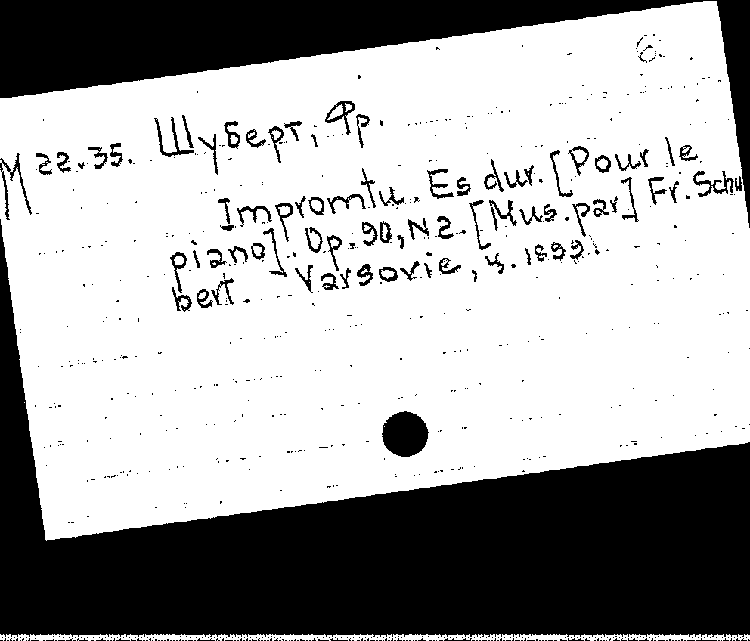 6.
M 22.35. Шуберт, Фр.
Impromtu. Es dur. [Pour le
piano]. Op. 90, N 2. [Mus. par] Fr. Schu
bert. Varsovie, 1899.